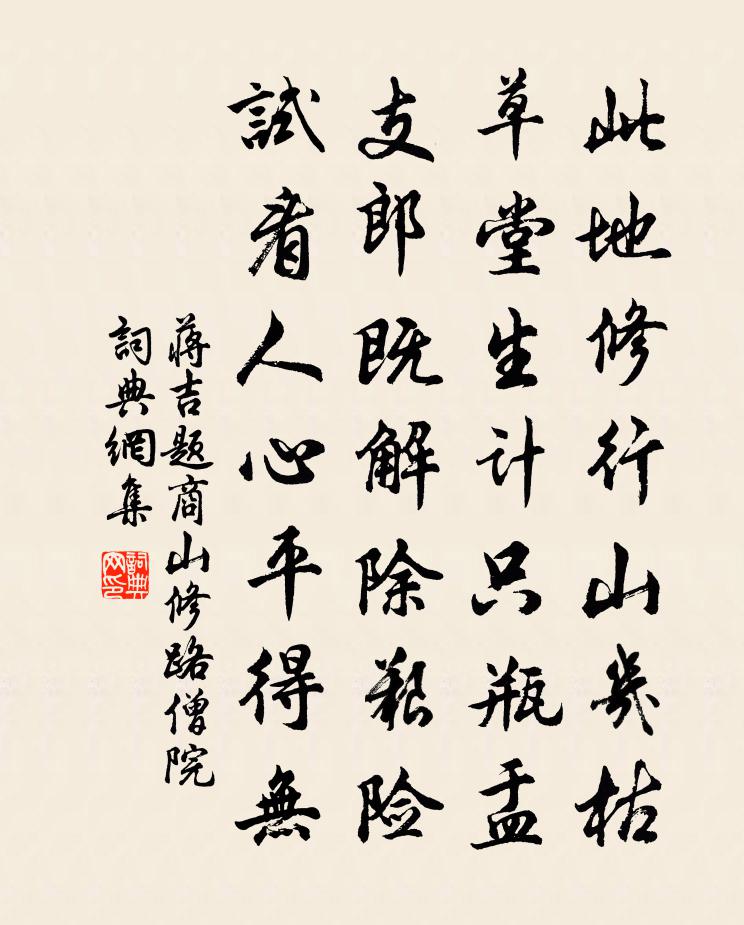 此地修行山幾枯
草堂生计只瓶盂
支郎既解除艱险
試看人心平得無
蒋吉题商山修路僧院
詞典網集
詞典網印